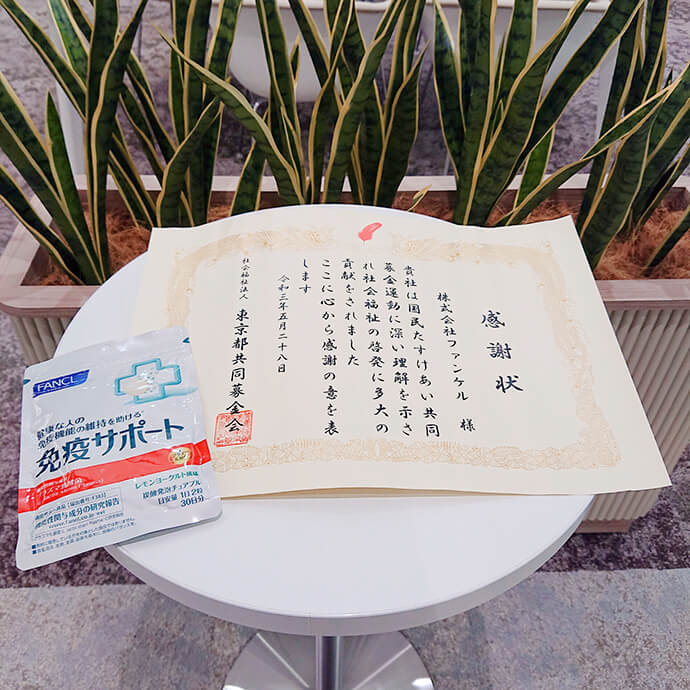 感謝状
株式会社ファンケル 様
貴社は国民たすけあい共同
募金運動に深い理解を示さ
れ社会福祉の啓発に多大の
貢献をされました
ここに心から感謝の意を表
します
令和三年五月二十八日
社会福祉法人 東京都共同募金会
FANCL
健康な人の
免疫機能の維持を助ける
免疫サポート
プラズマ乳酸菌
レモンヨーグルト風味
炭酸発泡チュアブル
目安量 1日2粒
30日分
機能性関与成分の研究報告